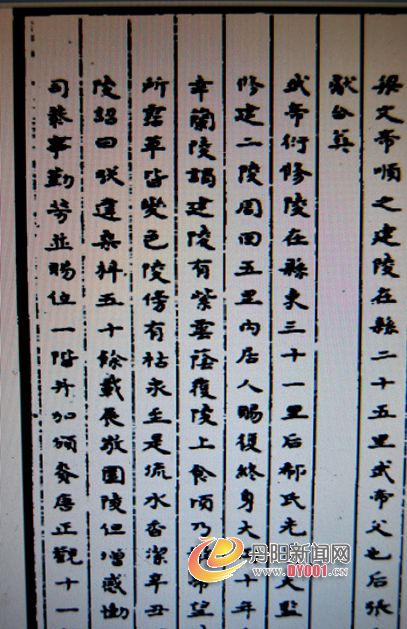 梁文帝順之建陵在縣二十五里武帝父也后張
獻合葬
武帝衍修陵在縣東三十一里后郗氏先監
修建二陵周回五里內居人賜復終身大十年
幸蘭陵謁建陵有紫雲蔭覆陵上食頃乃帝望
所霑草皆變色陵傍有枯泉至是流水香潔辛丑
陵詔曰朕違桑梓五十餘載展敬園陵但增感慟
司恭事勤勞並賜位一階并加頒賚唐正觀十一
丹阳新闻网
WWW.DY001.CN